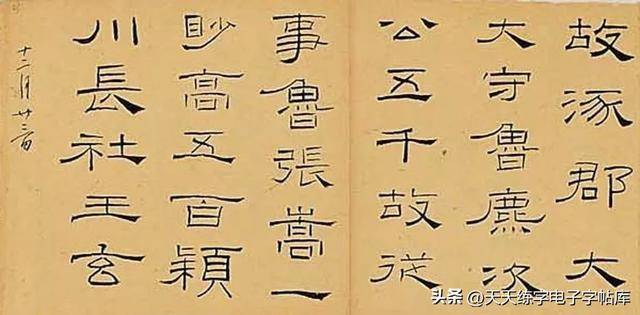 故涿郡大
大守魯麃次
公五千故從
事魯張嵩一
眇高五百穎
川長社王玄
十二月廿三日
头条 @天天练字电子字帖库